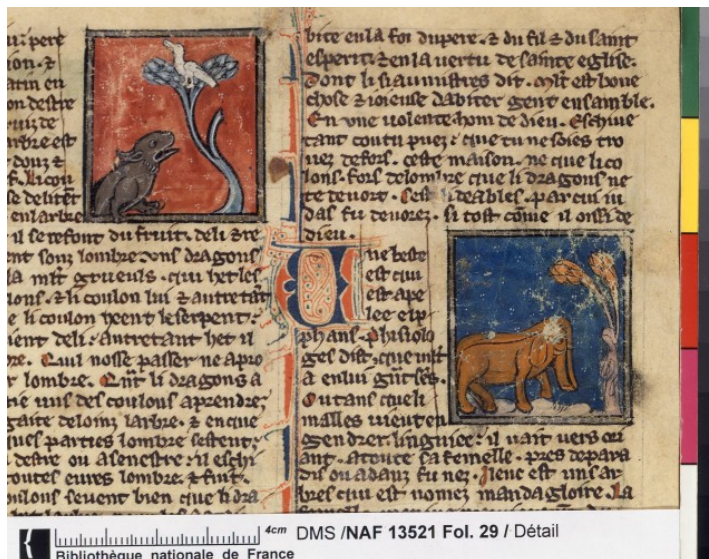 ui pere
ion. &
arin en
on destre
ruiz de
arbre est
douz &
se delitent
en larbre
il se refont du fruit. deli & re
ent som lombre. ens dragons
la mlt grueuls. qui het les
lons. & li coulon lui & autretāt
e li coulon heent le serpent:
ient deli: autretant het il
bre. Quil nosse passer ne apro
r lombre. Qn̄t li dragons a
ne uns des coulons aprendre;
gaite deloinz larbre. & en que
ques parties lombre sestent;
a destre ou a senestre: il eschi
toutes eures lombre. & fuit.
oulons sevent bien que li dra
bite en la foi du pere. & du fil & du saint
esperit: & en la vertu de sainte eglise.
Dont li siaumistres dit. Mlt est bone
chose & ioieuse dabiter gent ensamble.
En une violente hom de dieu. Eschive
tant com tu puez: que tu ne soies tro
vez defors. ceste maison. ne que li co
lons. fors de lombre que li dragons ne
te devort. Cest li deables. par cui iu
das fu devorez. si tost come il ossi de
dieu.
Une beste
est qui
est ape
lee elp
phans. Phisiolo
ges dist, que mlt
a en lui
Ou tans que li
malles vient en
gendrer. lingnice: il vait vers ori
ant. atoute sa femelle. pres de para
dis ou adanz fu nez. Ilenc est uns ar
bres qui est nomez mandagloire. La
4cm DMS /NAF 13521 Fol. 29 / Détail
Bibliothèque nationale de France